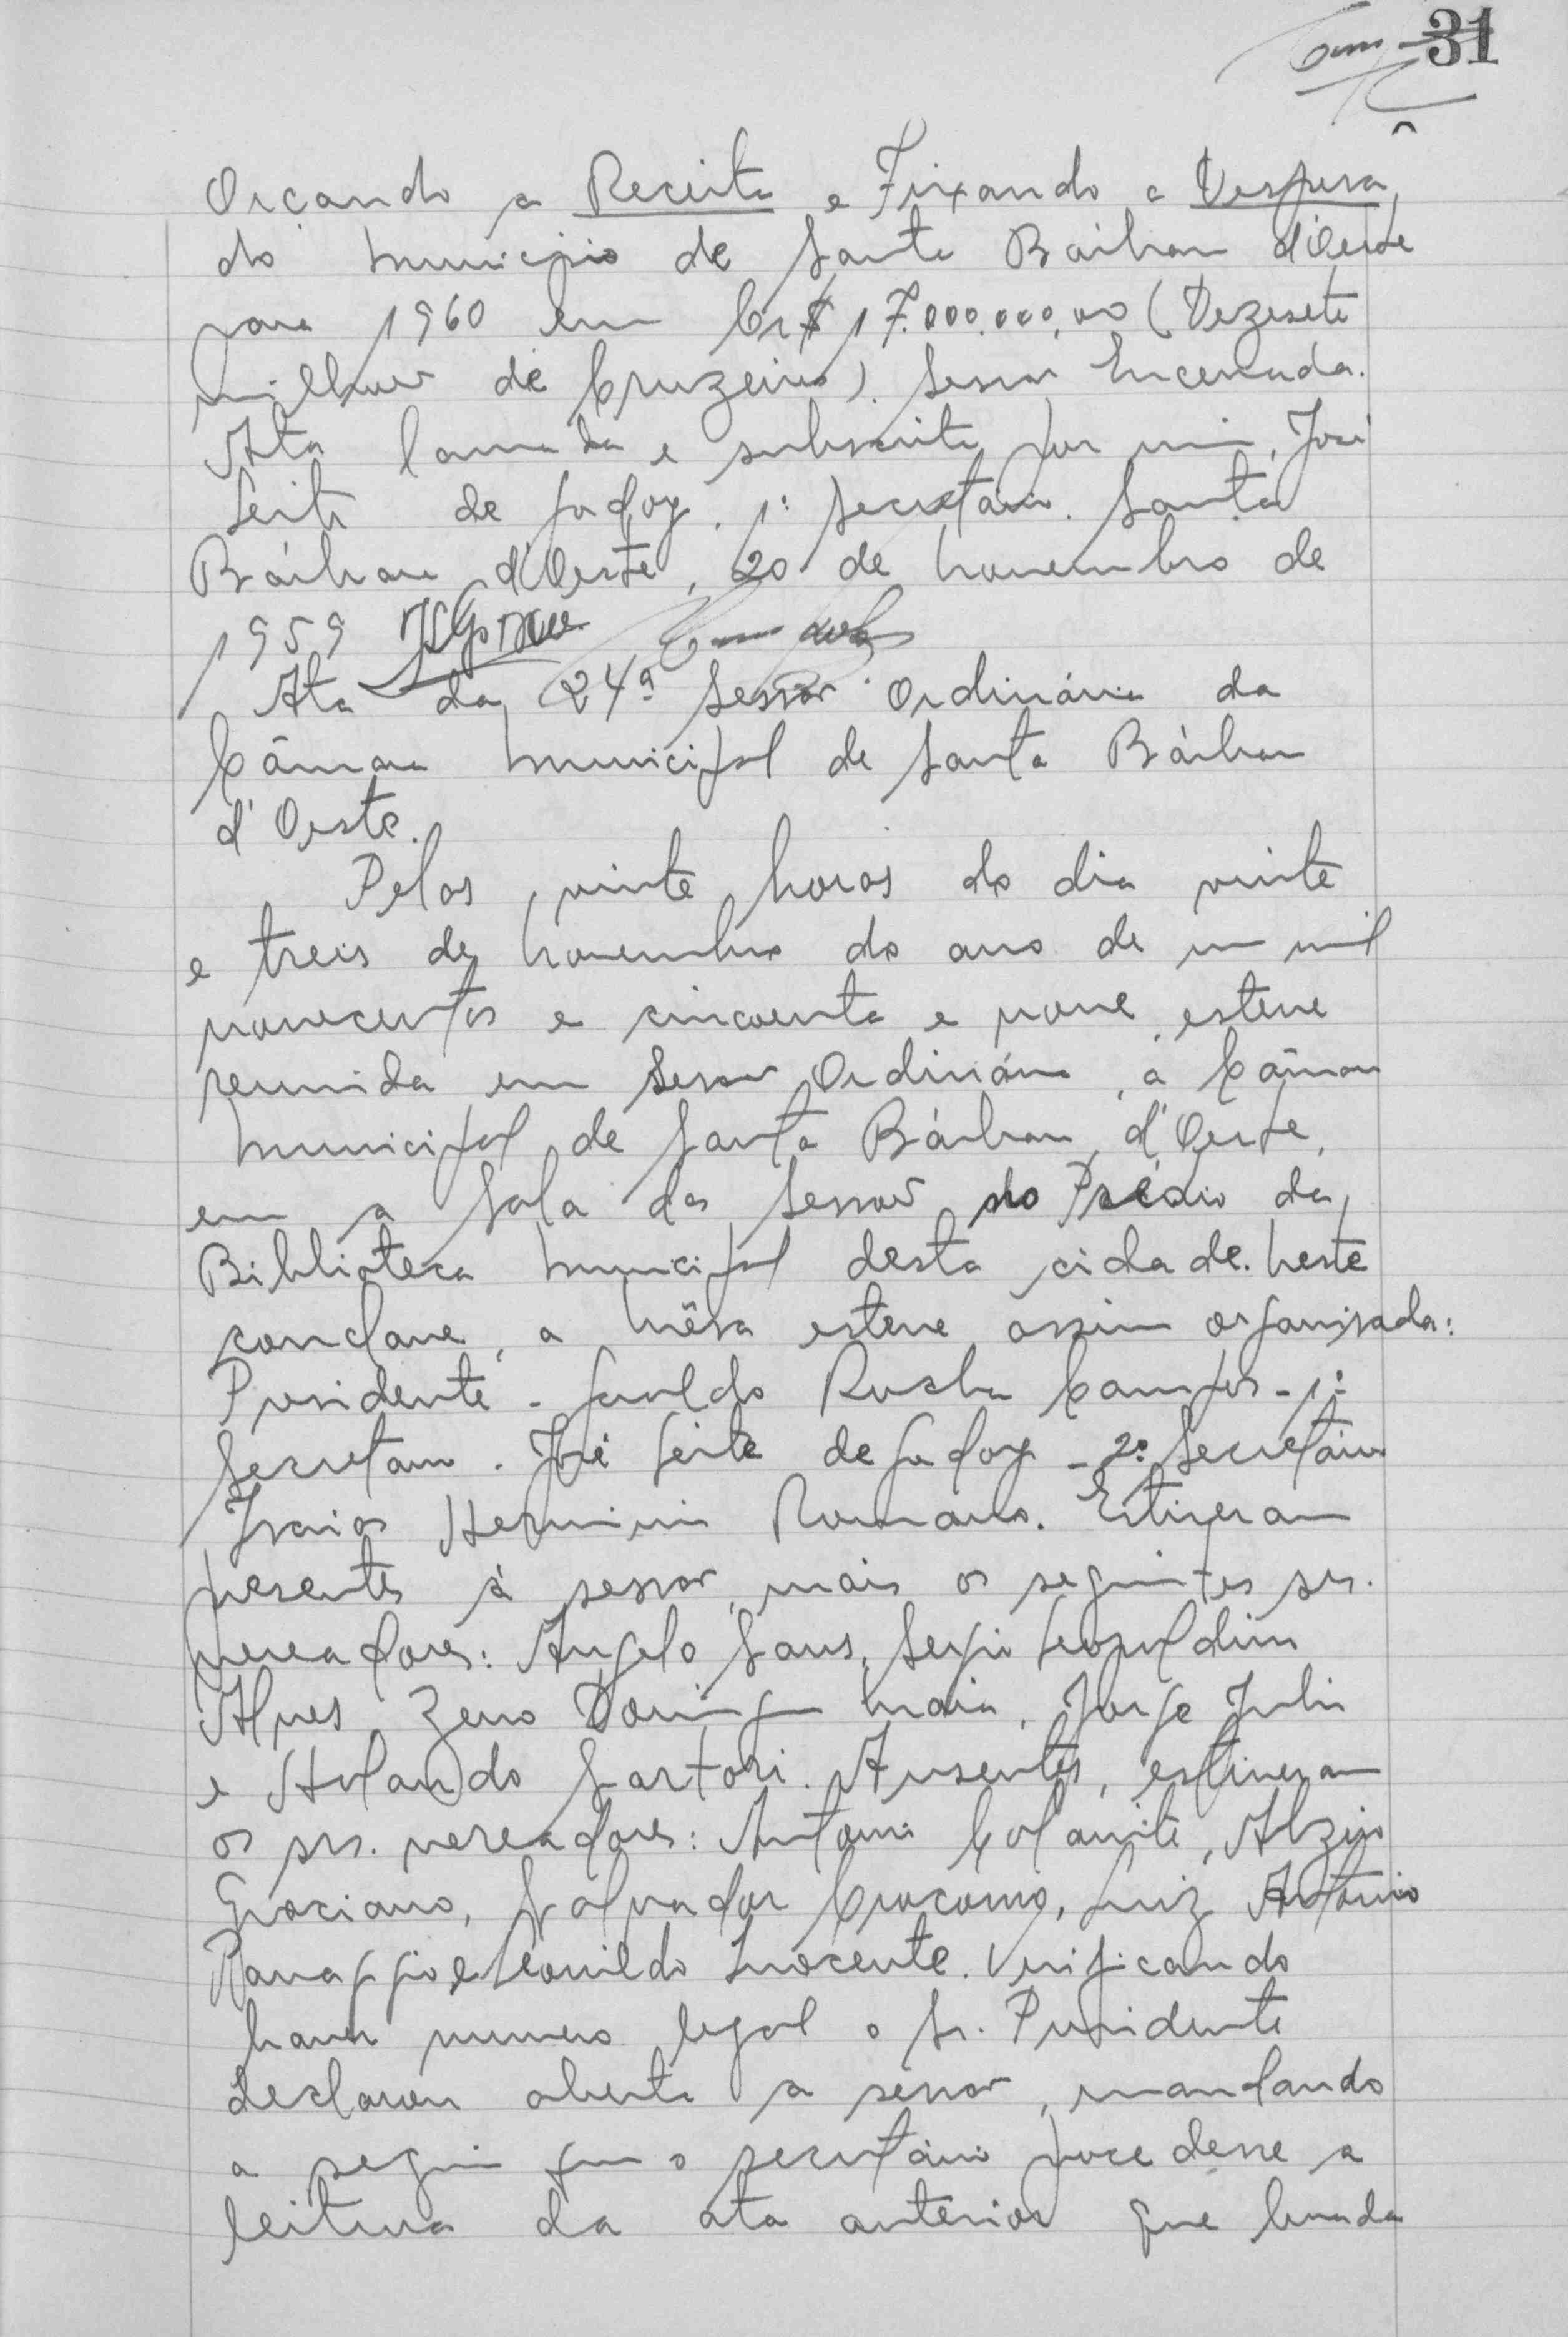 31
Orçando a Receita e Fixando a Despesa,
do município de Santa Bárbara d'Oeste
para 1960 em Cr$ 17.000.000,00 (Dezesete
milhões de Cruzeiros). Sessão Encerrada.
Ata lavrada e subscrita por mim, José
Leite de Godoy, 1º Secretário. Santa
Bárbara d'Oeste, 20 de novembro de
1959
Ata da 24ª Sessão Ordinária da
Câmara Municipal de Santa Bárbara
d'Oeste.
Pelas vinte horas do dia vinte
e treis de novembro do ano de um mil
novecentos e cincoenta e nove, esteve
reunida em Sessão Ordinária, a Câmara
Municipal de Santa Bárbara d'Oeste,
em a Sala das Sessões do Prédio da
Biblioteca Municipal desta cidade. Neste
conclave, a Mêsa esteve assim organisada:
Presidente - Geraldo Rocha Campos - 1º
Secretário - José Leite de Godoy - 2º Secretário
Isaias Herminio Romano. Estiveram
presentes à sessão, mais os seguintes srs.
vereadores: Angelo Sans, Sergio Leopoldino
Alves, Zeno Domingos Maia, Jorge Julio
e Holando Sartori. Ausentes, estiveram
os srs. vereadores: Antonio Alzijo
Graciano, Salvador Crocomo, Luiz Antônio
Panaggio e Leonildo Inocente. Verificando
haver numero legal o Sr. Presidente
declarou aberta a sessão, mandando
a seguir que o secretário procedesse a
leitura da ata anterior que lavrada